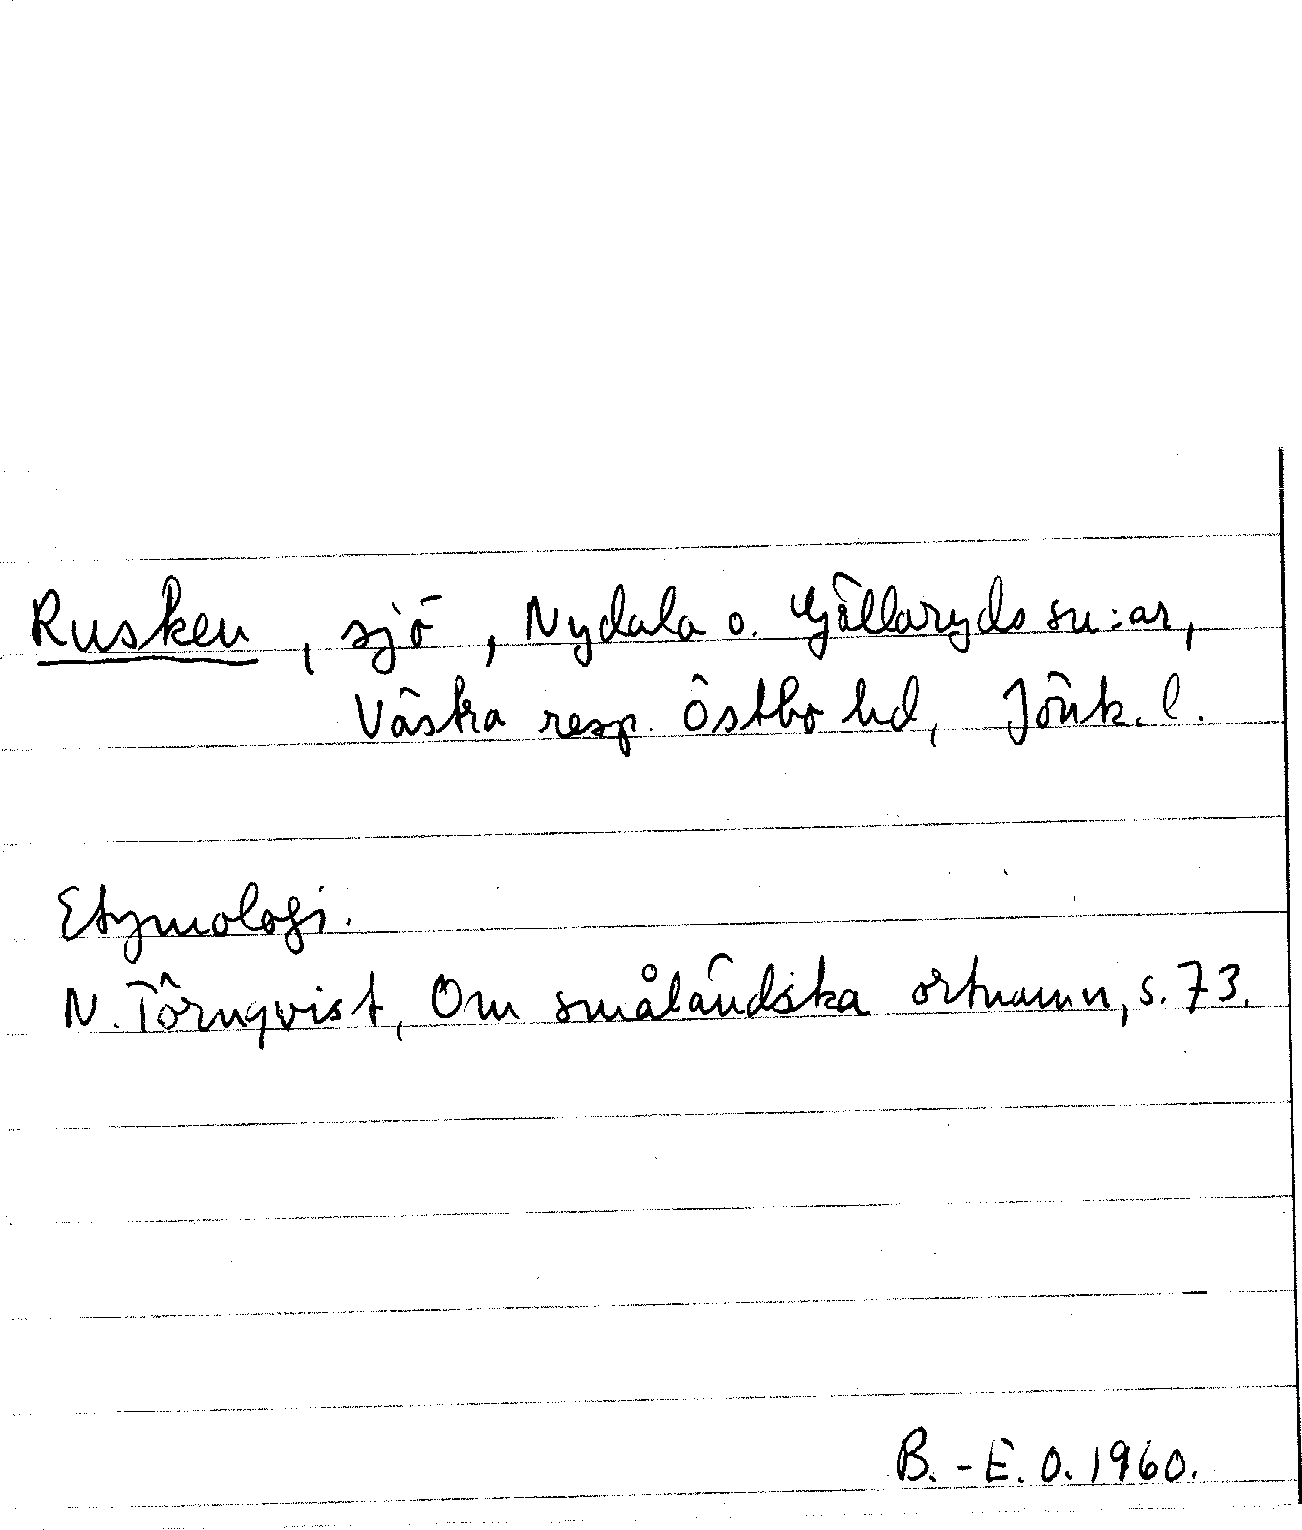 Rusken, sjö, Nydala o. Gällaryds sn:ar,
Västra resp. Östbo hd, Jönk. l.
Etymologi.
N. Törnqvist, Om småländska ortnamn, s. 73.
B.-E. O. 1960.